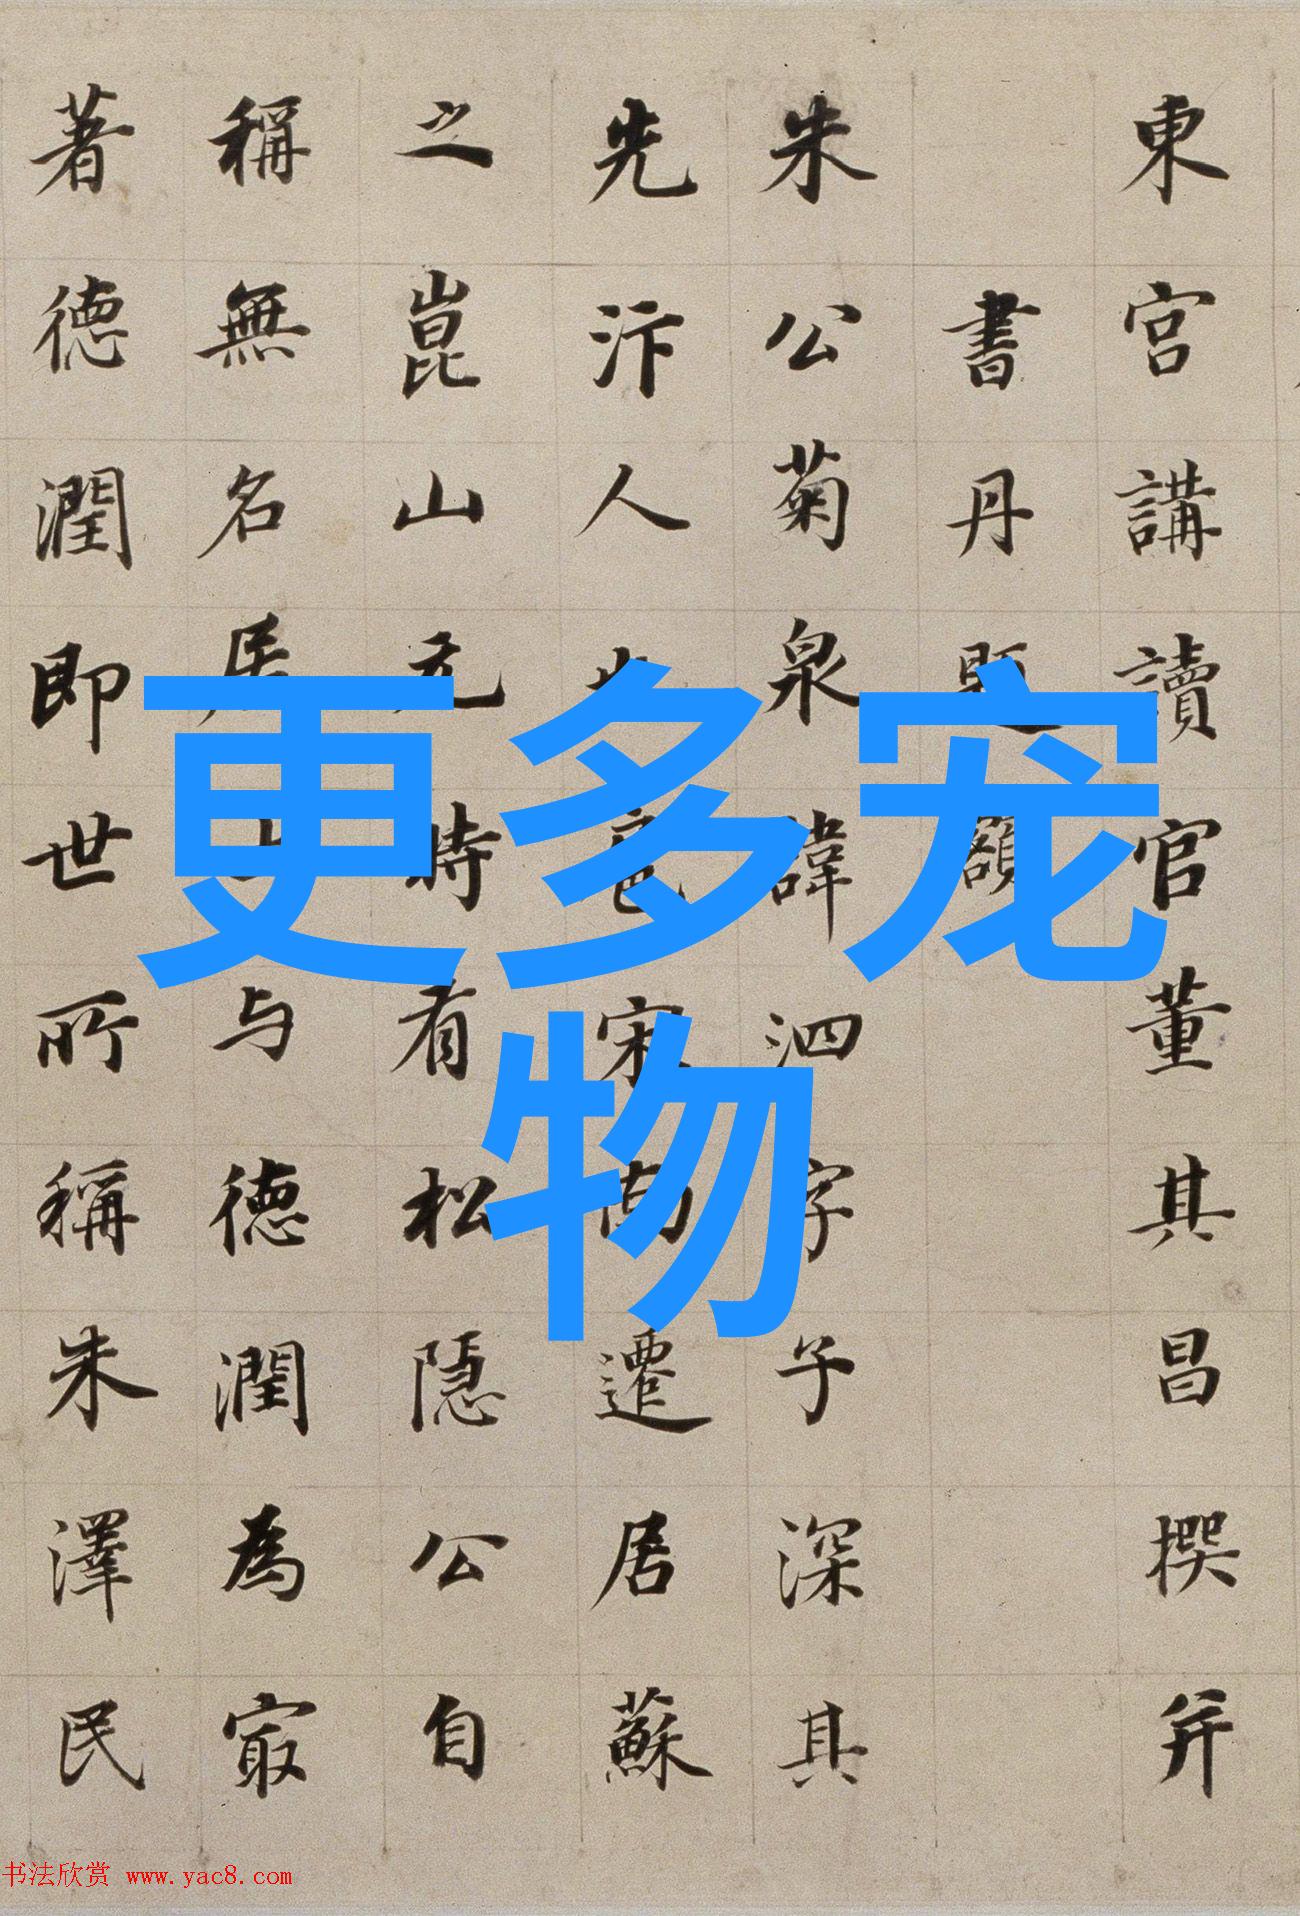 東宮講讀官董其昌撰并
書丹題額
朱公菊泉諱泗字子深其
先汴人宋南遷居蘇
之崑山元時有松隱公自
稱無名居士与德潤為㝡
著德潤即世所稱朱澤民
更多宠
物
书法欣赏 www.yac8.com